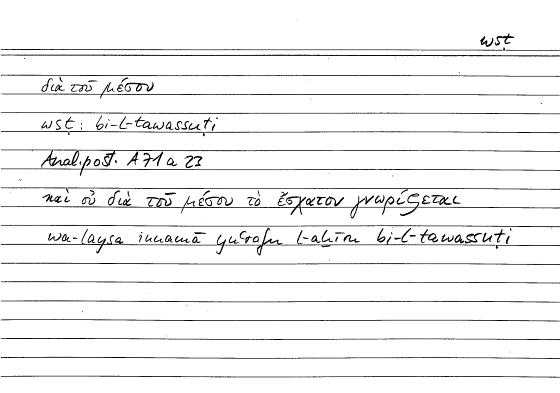 wsṭ
διὰ τοῦ μέσου
wsṭ: bi-l-tawassuṭi
Anal. post. A 71 a 23
καὶ οὐ διὰ τοῦ μέσου τὸ ἔσχατον γνωρίζεται
wa-laysa innamā yuʿrafu l-aḫīru bi-l-tawassuṭi